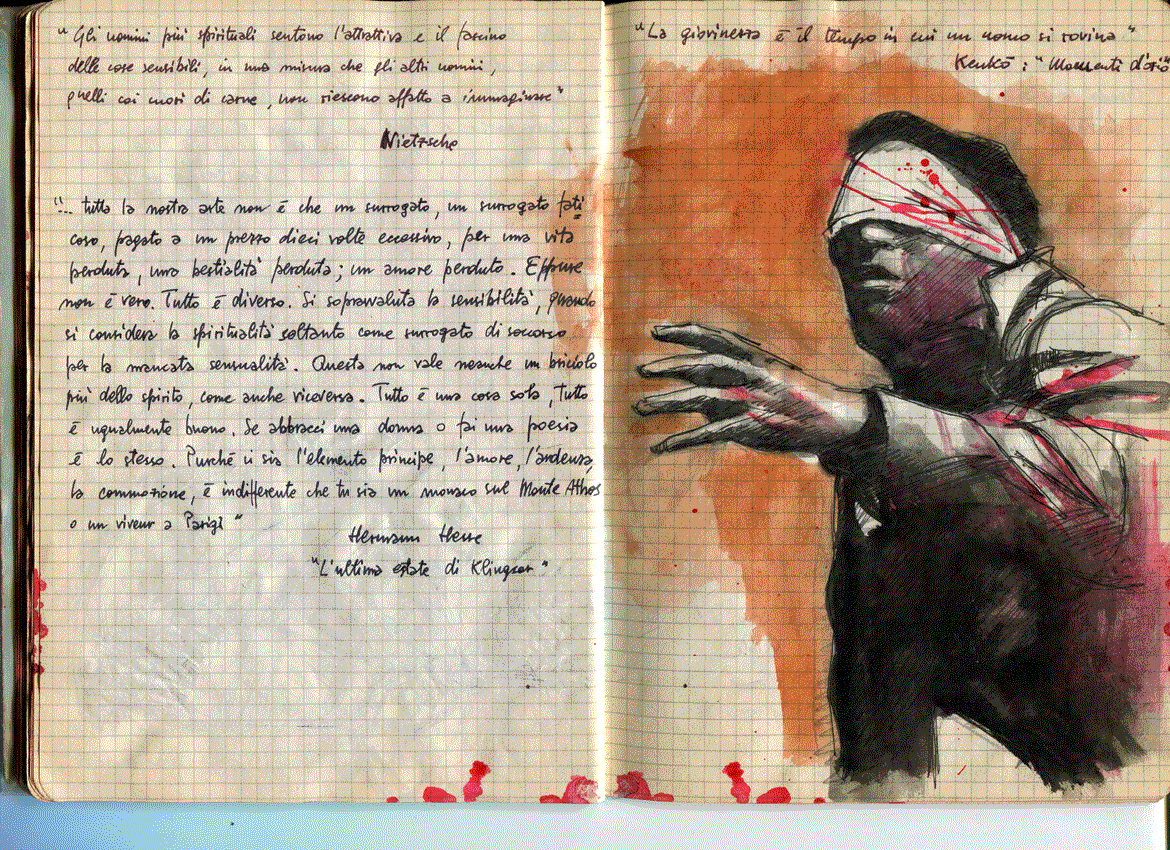 "Gli uomini più spirituali sentono l'attrattiva e il fascino
delle cose sensibili, in una misura che gli altri uomini,
quelli coi cuori di carne, non riescono affatto a immaginare"
Nietzsche
"... tutta la nostra arte non è che un surrogato, un surrogato fati
coso, pagato a un prezzo dieci volte eccessivo, per una vita
perduta, una bestialità perduta; un amore perduto. Eppure
non è vero. Tutto è diverso. Si sopravvaluta la sensibilità, quando
si considera la spiritualità soltanto come surrogato di soccorso
per la mancata sensualità. Questa non vale neanche un briciolo
più dello spirito, come anche viceversa. Tutto è una cosa sola, Tutto
è ugualmente buono. Se abbracci una donna o fai una poesia
è lo stesso. Purché ci sia l'elemento principe, l'amore, l'ardenza,
la commozione, è indifferente che tu sia un monaco sul Monte Athos
o un viveur a Parigi"
Hermann Hesse
"L'ultima estate di Klingsor"
"La giovinezza è il tempo in cui un uomo si rovina"
Kenkō: "Momenti d'ozio"